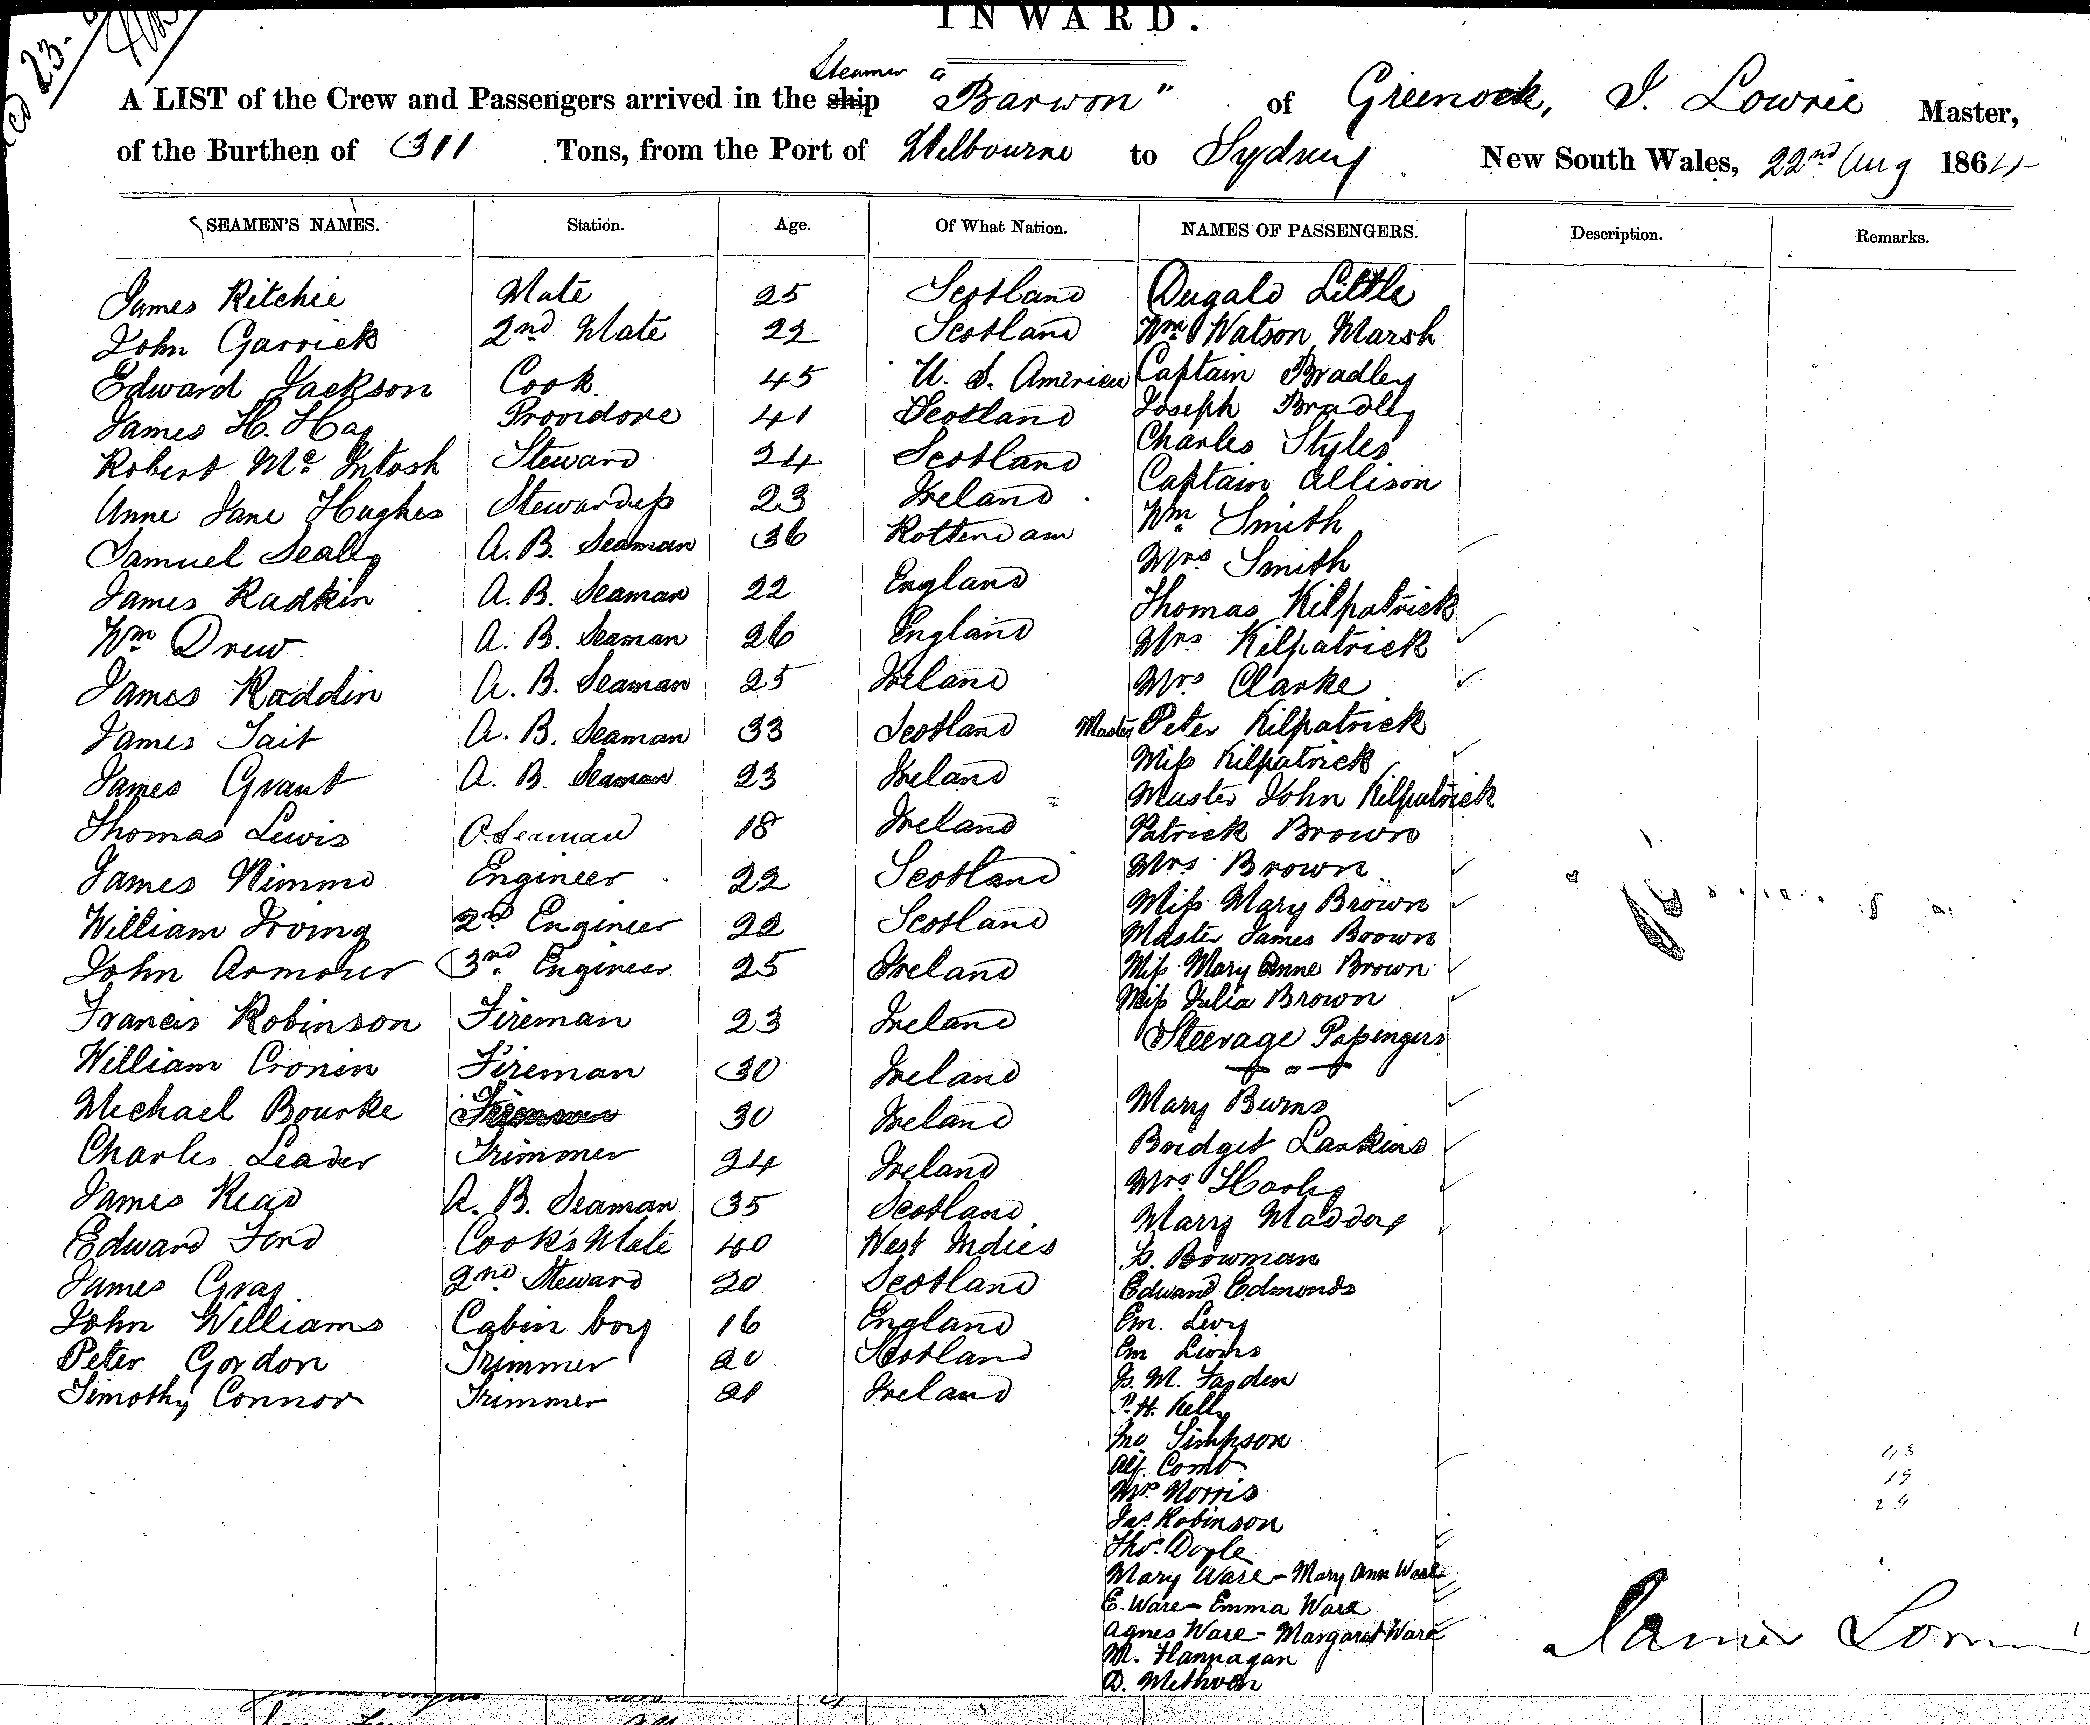 INWARD.
Steamer
A LIST of the Crew and Passengers arrived in the ship "Barwon" of Greenock, J. Lowrie Master,
of the Burthen of 311 Tons, from the Port of Melbourne to Sydney New South Wales, 22nd Aug 1864
SEAMEN'S NAMES. Station. Age. Of What Nation. NAMES OF PASSENGERS. Description. Remarks.
James Ritchie Mate 25 Scotland Dugald Little
John Garrick 2nd Mate 22 Scotland Wm Watson Marsh
Edward Jackson Cook 45 U. S. America Captain Bradley
James H. Hay Providore 41 Scotland Joseph Bradley
Robert Mc Intosh Steward 24 Scotland Charles Styles
Anne Jane Hughes Stewardess 23 Ireland Captain Allison
Samuel Sealy A. B. Seaman 36 Rotterdam Wm Smith
James Radkin A. B. Seaman 22 England Mrs Smith
Wm Drew A. B. Seaman 26 England Thomas Kilpatrick
James Roddin A. B. Seaman 25 Ireland Mrs Kilpatrick
James Tait A. B. Seaman 33 Scotland Mrs Clarke
James Grant A. B. Seaman 23 Ireland Master Peter Kilpatrick
Thomas Lewis O. Seaman 18 Ireland Miss Kilpatrick
James Nimmo Engineer 22 Scotland Master John Kilpatrick
William Irving 2nd Engineer 22 Scotland Patrick Brown
John Armour 3rd Engineer 25 Ireland Mrs Brown
Francis Robinson Fireman 23 Ireland Miss Mary Brown
William Cronin Fireman 30 Ireland Master James Brown
Michael Bourke Fireman 30 Ireland Miss Mary Anne Brown
Charles Leader Trimmer 24 Ireland Miss Julia Brown
James Read A. B. Seaman 35 Scotland Steerage Passengers
Edward Ford Cook's Mate 40 West Indies Mary Burns
James Gray 2nd Steward 20 Scotland Bridget Larkins
John Williams Cabin boy 16 England Mrs
Peter Gordon Trimmer 20 Scotland Mary Maddox
Timothy Connor Trimmer 21 Ireland Bowman
Edward Edmonds
Em. Levy
Em Lyons
M. Fayden
P. H. Kelly
Jno Simpson
Alf. Comb
Norris
Jas. Robinson
Thos. Doyle
Mary Ware - Mary Ann Ware
E. Ware - Emma Ware
Agnes Ware - Margaret Ware
M. Flannagan
D. Methven
James Lowrie